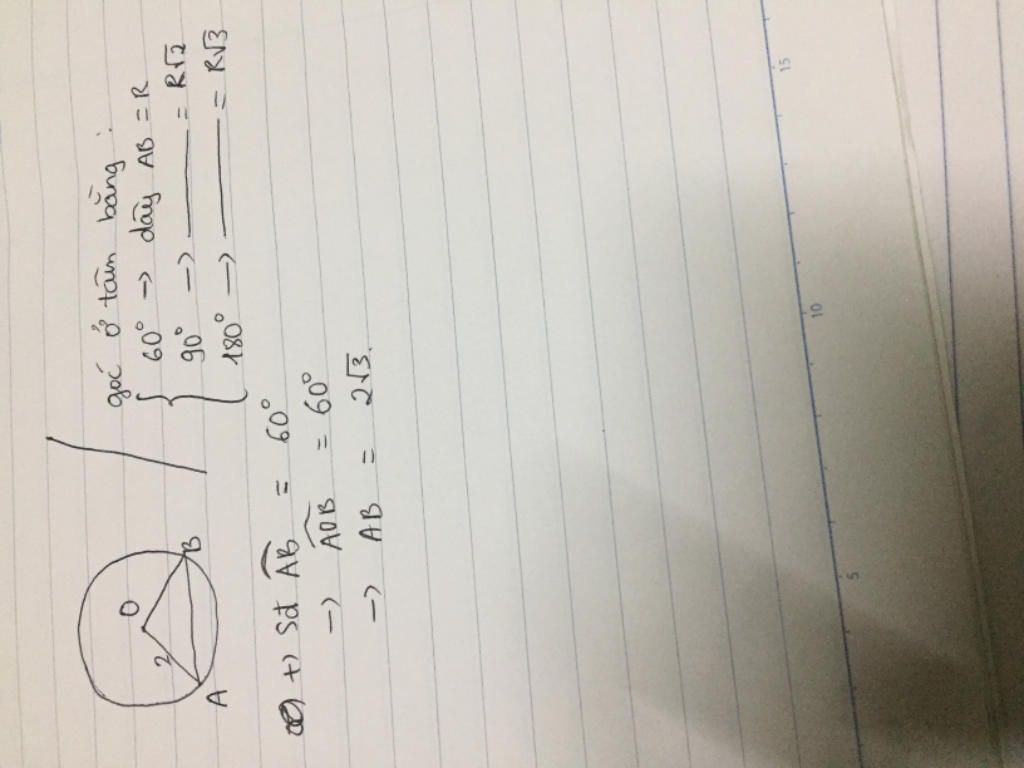 góc ở tâm bằng:
60° → dây AB = R
90° → ——— = R√2
180° → ——— = R√3
O
2
A
B
+) Sđ AB = 60°
→ AOB = 60°
→ AB = 2√3.
5
10
15